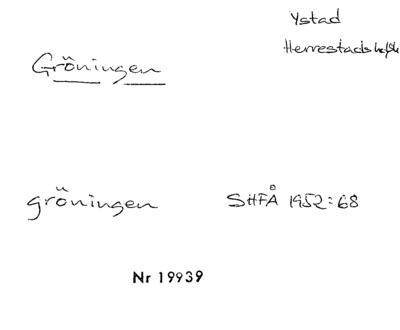 Ystad
Herrestads
Gröningen
gröningen SHFÅ 1952:68
Nr 19939